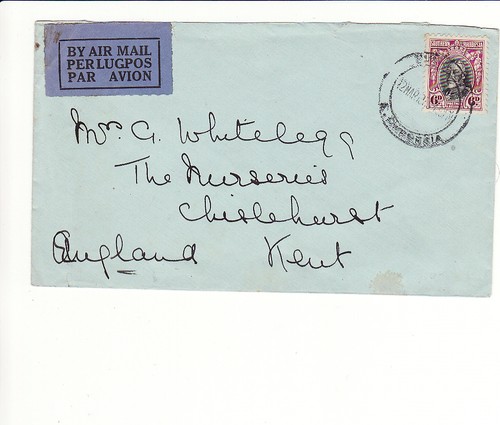 BY AIR MAIL
PER LUGPOS
PAR AVION
SOUTHERN RHODESIA
6D 6D
S. RHODESIA
Mrs. G. Whitelegg
The Nurseries
Chislehurst
England Kent